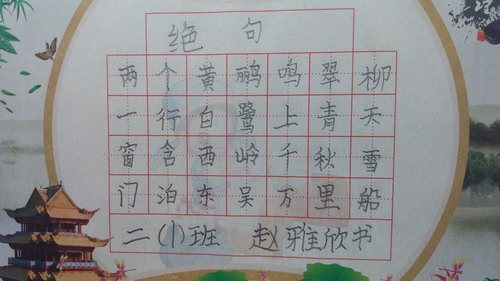 绝句
两个黄鹂鸣翠柳
一行白鹭上青天
窗含西岭千秋雪
门泊东吴万里船
二(1)班 赵雅欣书